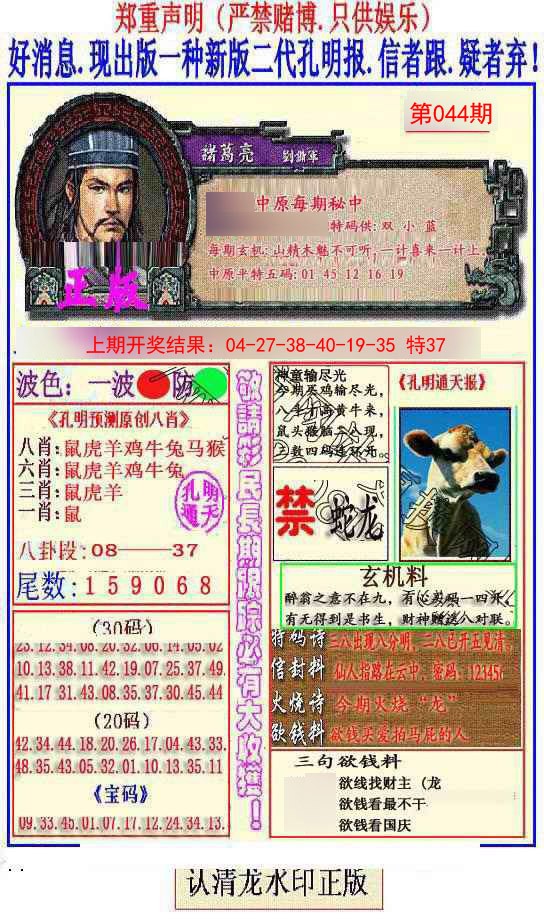 郑重声明（严禁赌博.只供娱乐）
好消息.现出版一种新版二代孔明报.信者跟.疑者弃！
第044期
諸葛亮
中原每期秘中
特码供：双 小 蓝
每期玄机：山精木魅不可听，一计喜来一计上。
中原平特五码：01 45 12 16 19
正版
上期开奖结果：04-27-38-40-19-35 特37
波色：一波 防
《孔明预测原创八肖》
八肖：鼠虎羊鸡牛兔马猴
六肖：鼠虎羊鸡牛兔
三肖：鼠虎羊
一肖：鼠
孔明
通天
八卦段：08——37
尾数：159068
（30码）
23.12.34.08.20.32.06.14.05.02
10.13.38.11.42.19.07.25.37.49.
41.17.31.43.08.35.37.30.45.44
（20码）
42.34.44.18.20.26.17.04.43.33.
48.35.43.05.32.01.10.13.35.11
《宝码》
09.33.45.01.07.17.12.24.34.13.
敬請彩民長期跟踪必有大收獲！
神童输尽光
今期买鸡输尽光，
《孔明通天报》
禁
蛇龙
玄机料
醉翁之意不在九，有心买码一四开
有无得到是书生，财神赠送八对联。
特码诗 三八出现八分明，二八已开五见清。
信封料 仙人指路在云中，密码：123456
火烧诗 今期火烧“龙”
欲钱料 欲钱买爱拍马屁的人
三句欲钱料
欲线找财主（龙
欲钱看最不干
欲钱看国庆
认清龙水印正版